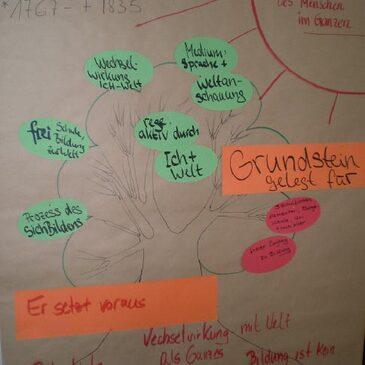 *1767 - + 1835
des Menschen
im Ganzen
Wechsel-
wirkung
Ich-Welt
Medium:
Sprache +
Weltan-
schauung
frei
Schule,
Bildung
für
rege
aktiv durch
Ich +
Welt
Grundstein
gelegt für
Prozess des
SichBildens
Er setzt voraus
Wechselwirkung mit Welt
als Ganzes
Bildung ist kein